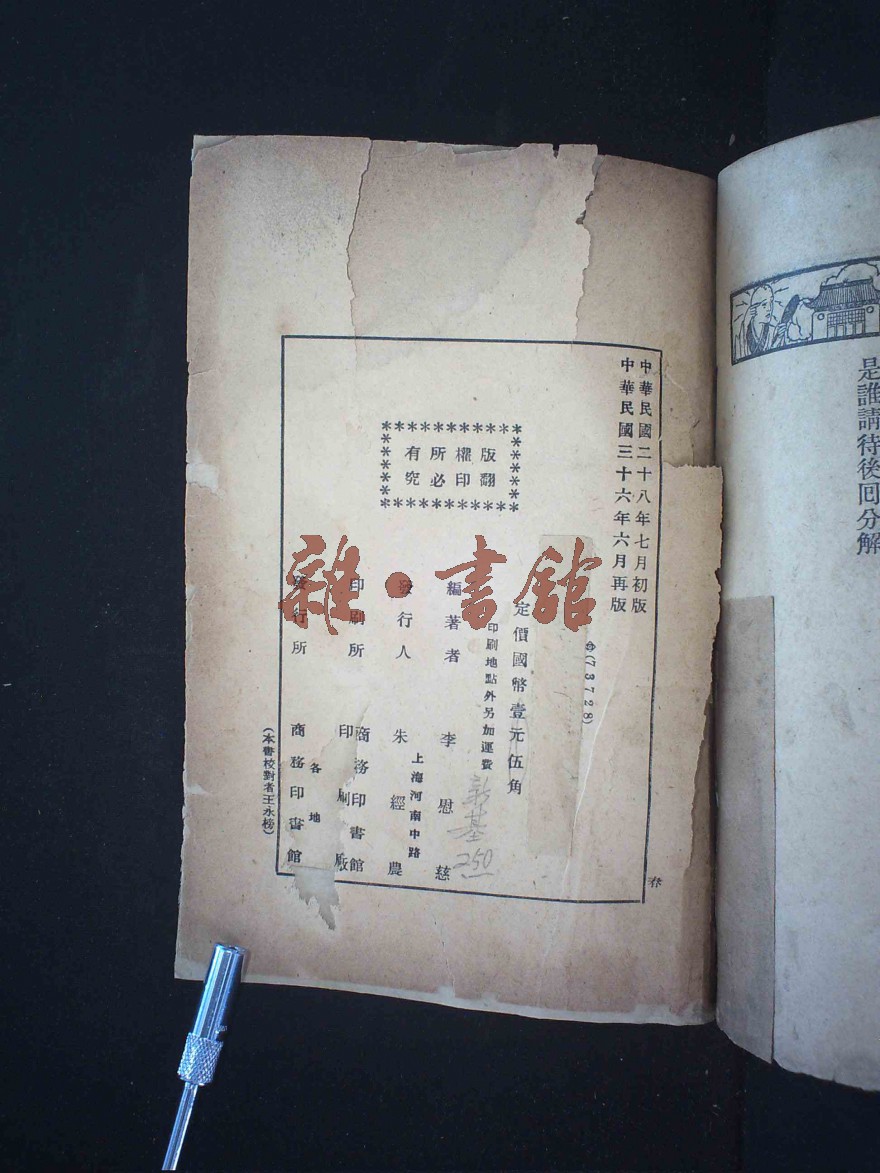 中華民國二十八年七月初版
中華民國三十六年六月再版
(73728)
版權所有
翻印必究
定價國幣壹元伍角
印刷地點外另加運費
編著者 李慰慈
上海河南中路
發行人 朱經農
印刷所 商務印書館
印刷廠
發行所 各地
商務印書館
(本書校對者王永榜)
基
250
雜·書館
是誰請待後回分解